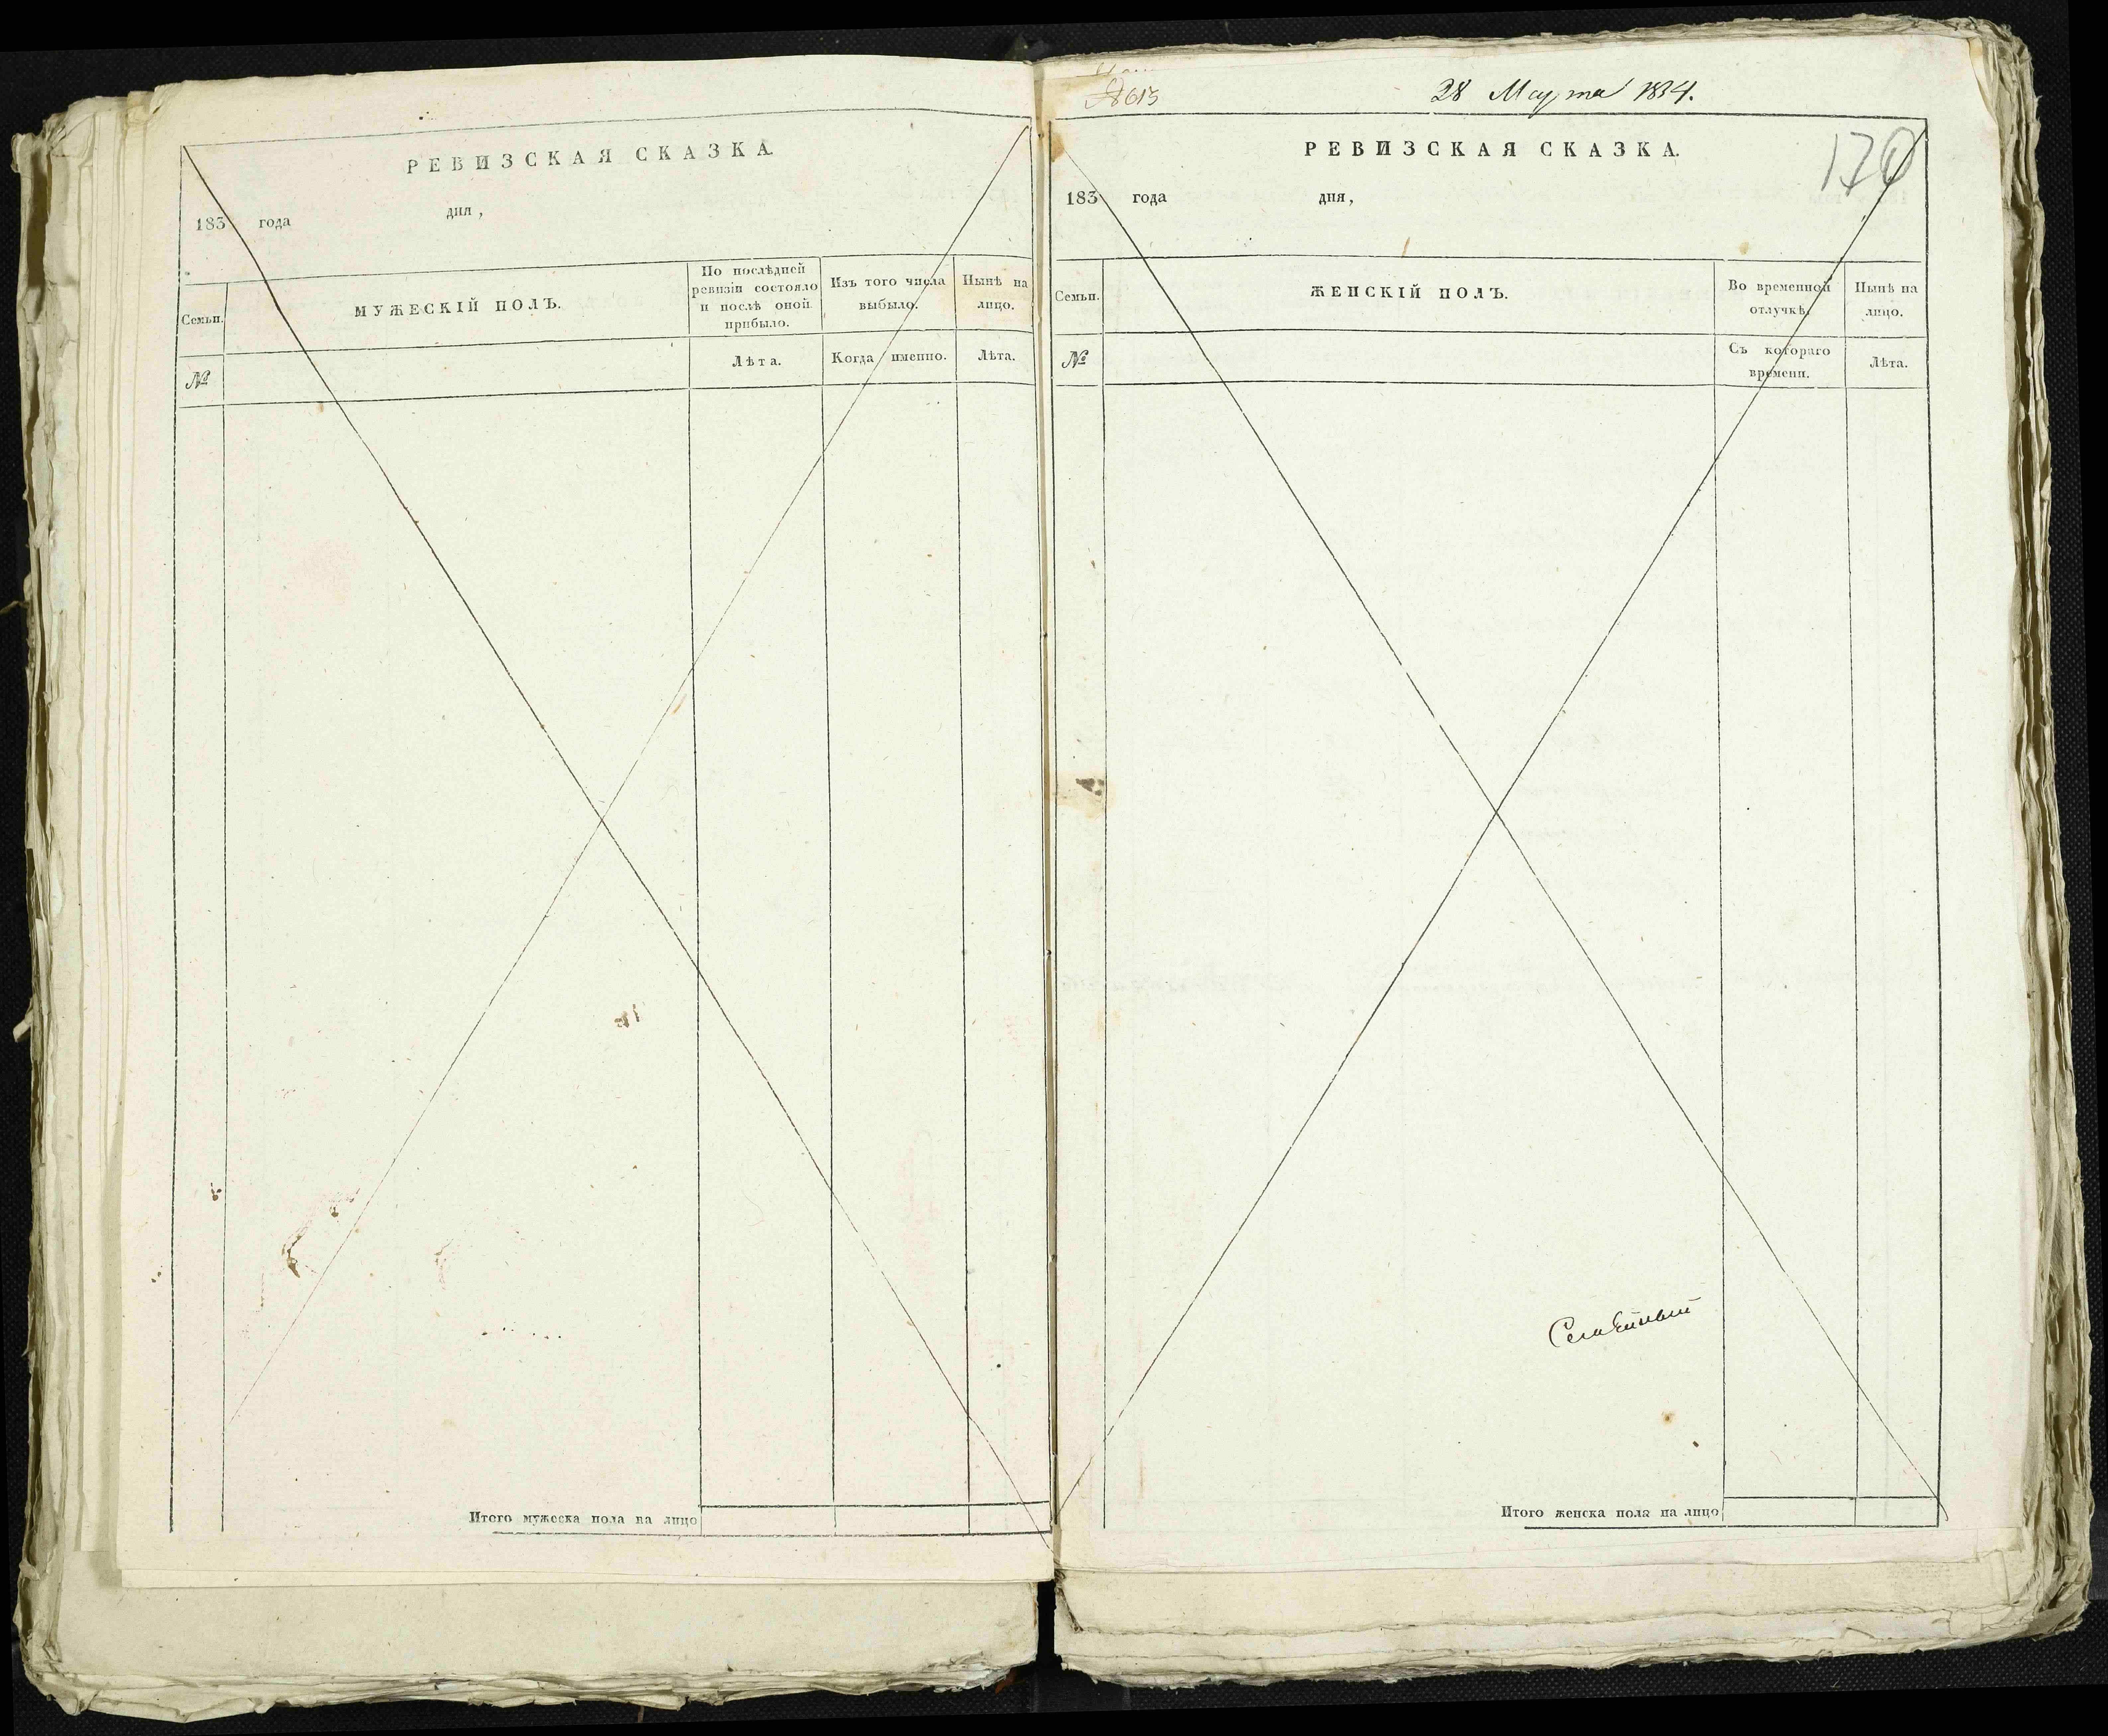 РЕВИЗСКАЯ СКАЗКА.
183 года дня,
Семьи.
МУЖЕСКІЙ ПОЛЪ.
По послѣдней ревизіи состояло и послѣ оной прибыло.
Изъ того числа выбыло.
Нынѣ на лицо.
№
Лѣта.
Когда именно.
Лѣта.
Итого мужеска пола на лицо
№ 615
28 Марта 1834.
170
РЕВИЗСКАЯ СКАЗКА.
183 года дня,
Семьи.
ЖЕНСКІЙ ПОЛЪ.
Во временной отлучкѣ.
Нынѣ на лицо.
№
Съ котораго времени.
Лѣта.
Итого женска пола на лицо